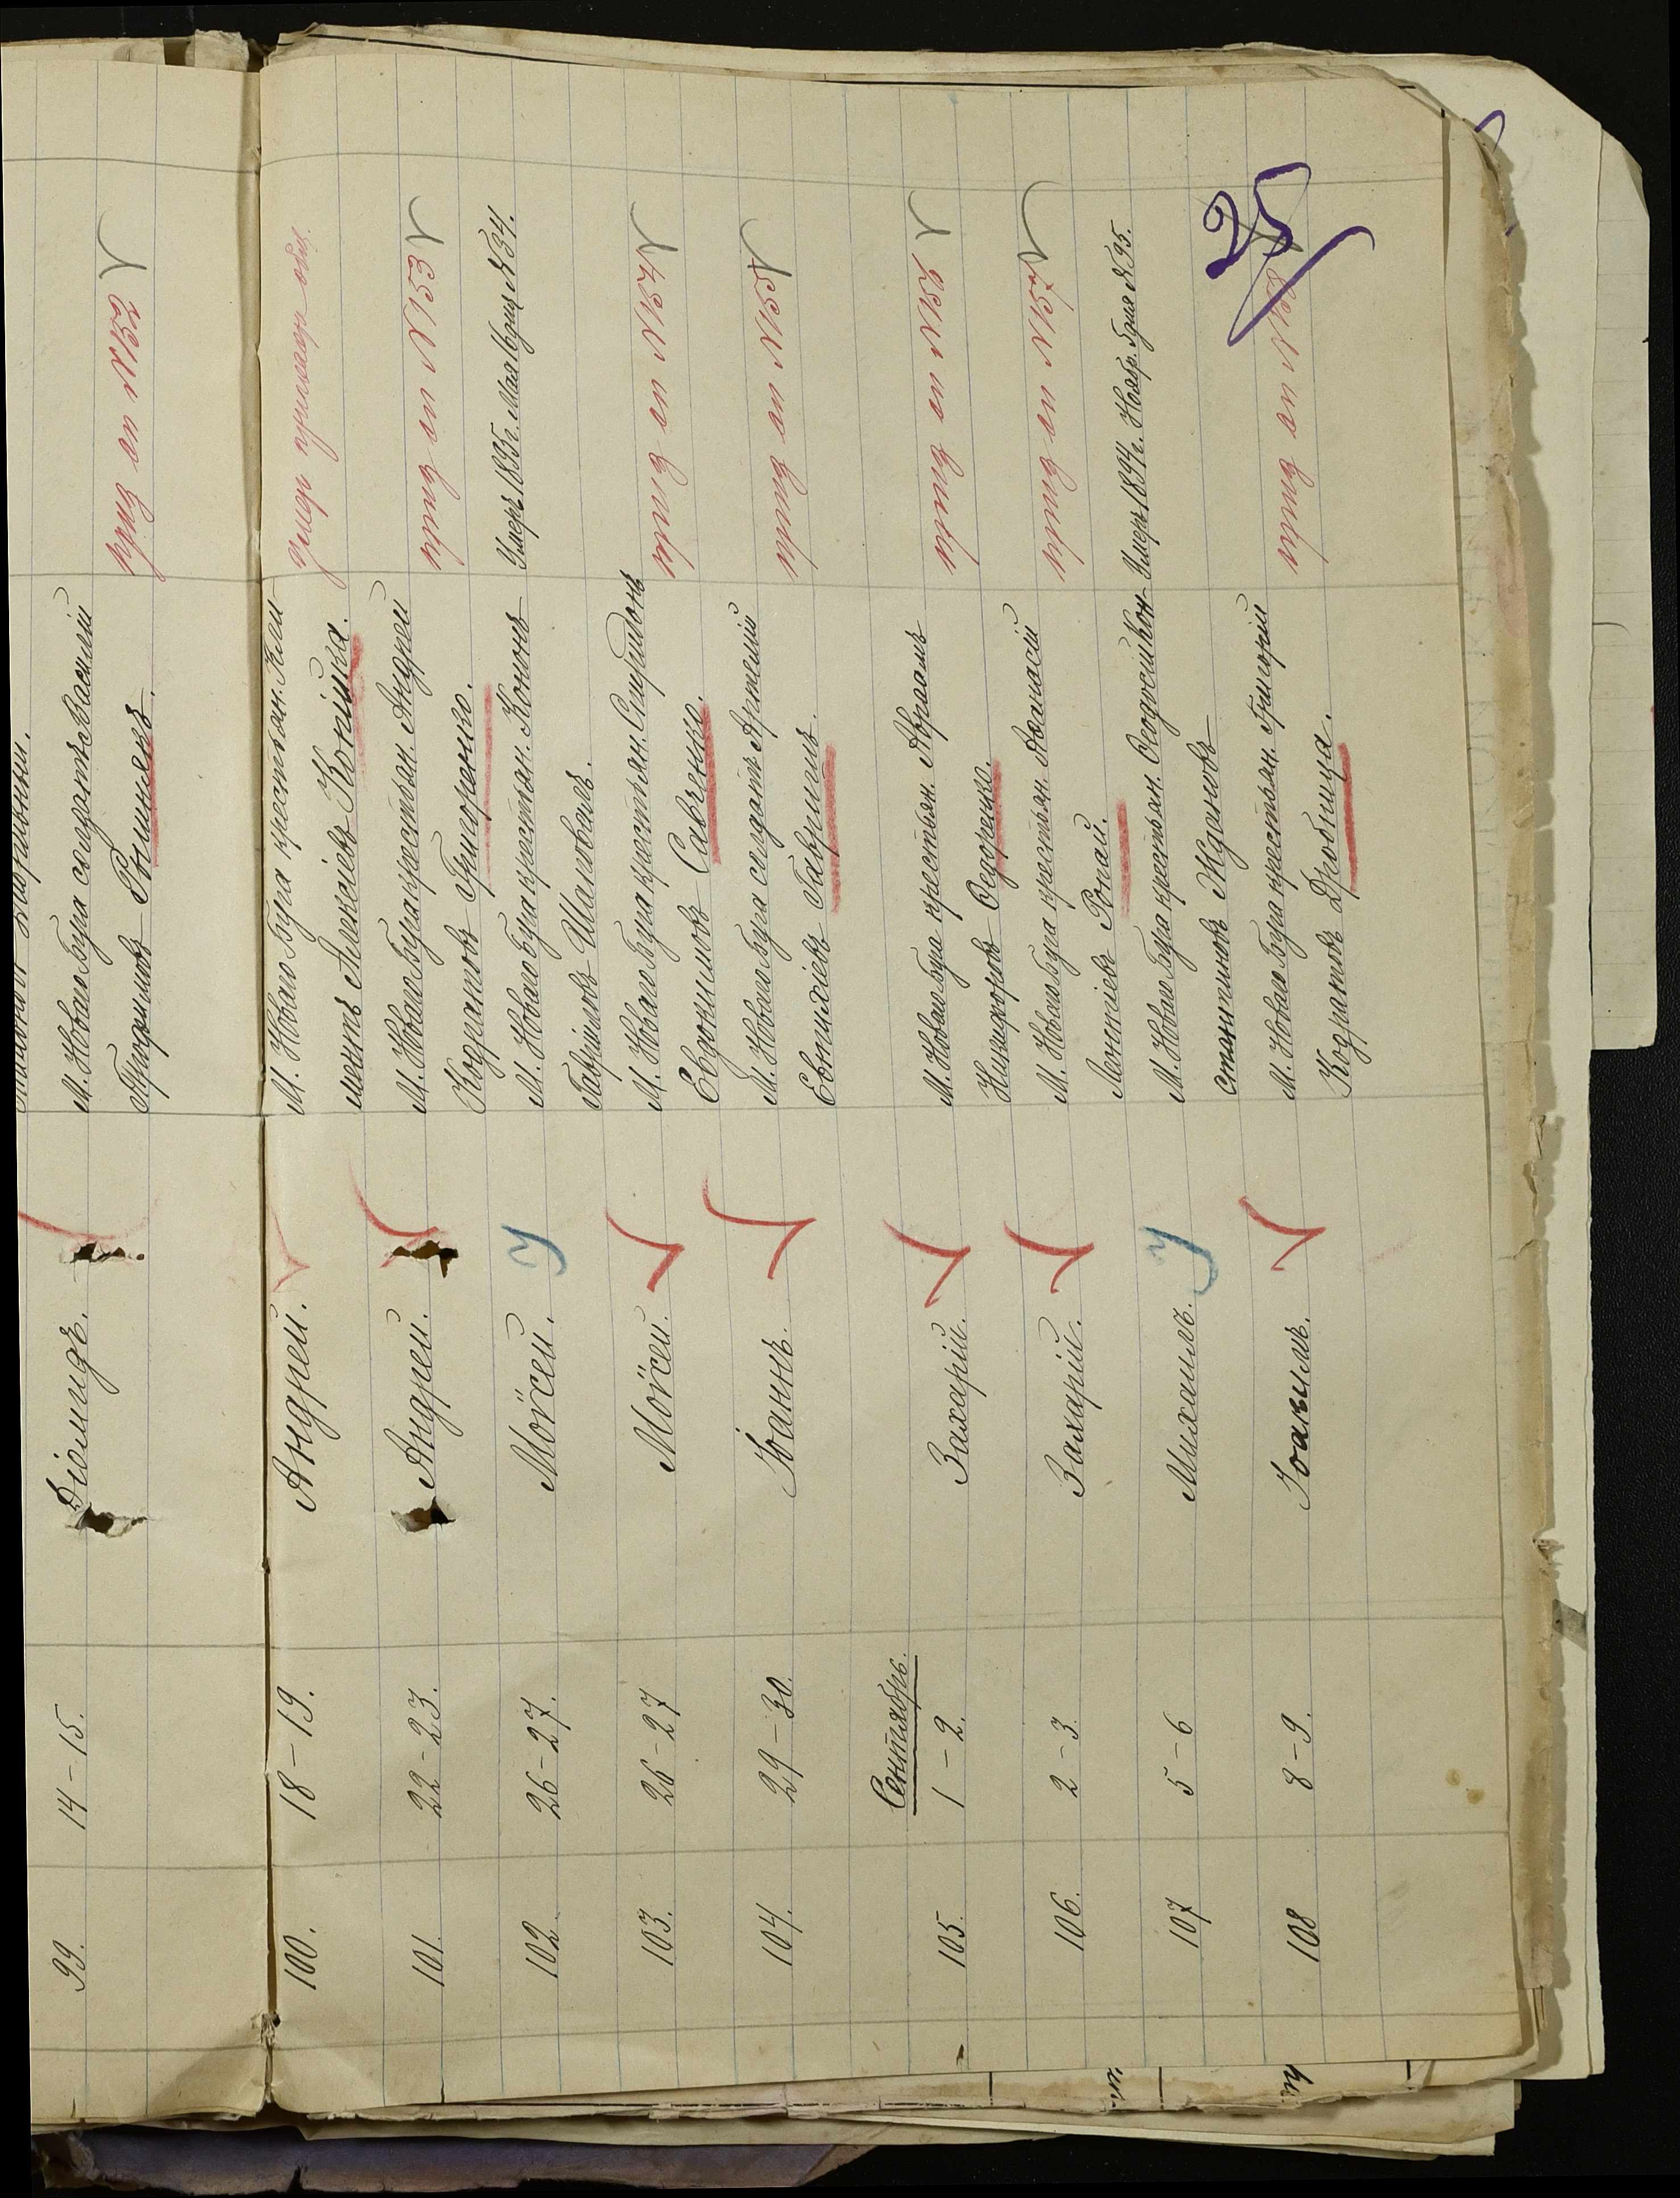 99. 14-15. Діомидъ. М. Новаго Буга солдатъ Василій
Трофимовъ
приз сп №152
100. 18-19. Андрей. М. Новаго Буга крестьян. Кли-
ментъ Алексіевъ Копійка.
умер
101. 22-23. Андрей. М. Новаго Буга крестьян. Андрей
Кодратовъ Григоренко.
приз сп №153
102 26-27. Моѵсей. М. Новаго Буга крестьян. Кононъ
Гавріиловъ Шаповалъ.
Умеръ 1895 г. Мая 16 дня №34.
103. 26-27 Моѵсей. М. Новаго Буга крестьян. Спиридонъ
Евдокимовъ Савченко.
приз сп №154
104. 29-30. Іоаннъ. М. Новаго Буга солдатъ Артемій
Евтихіевъ Гавришъ.
приз сп №155
Сентябрь.
105. 1-2. Захарій. М. Новаго Буга крестьян. Авраамъ
Никифоровъ Ѳедоренко.
приз сп №156
106. 2-3. Захарій. М. Новаго Буга крестьян. Аѳанасій
Леонтіевъ Ропай.
приз сп №157
107 5-6 Михаилъ. М. Новаго Буга крестьян. Ѳеодосій Кон-
стантиновъ Ждановъ
Умеръ 1894 г. Ноябр. 5 дня №95.
108 8-9. Іоакимъ. М. Новаго Буга крестьян. Григорій
Кодратовъ Дробница.
приз сп №158
25